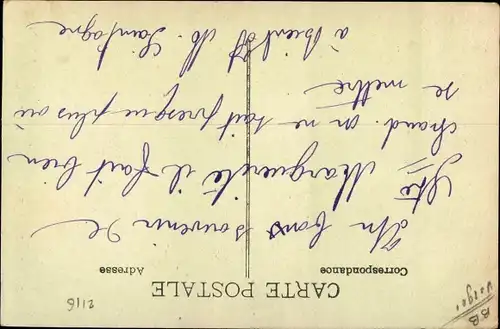 CARTE POSTALE
Correspondance
Adresse
Un bons souvenir de
Ste Marguerite il fait bien
chaud. on ne sait presque plus où
se mettre
à bientôt M. Saintagne
2116